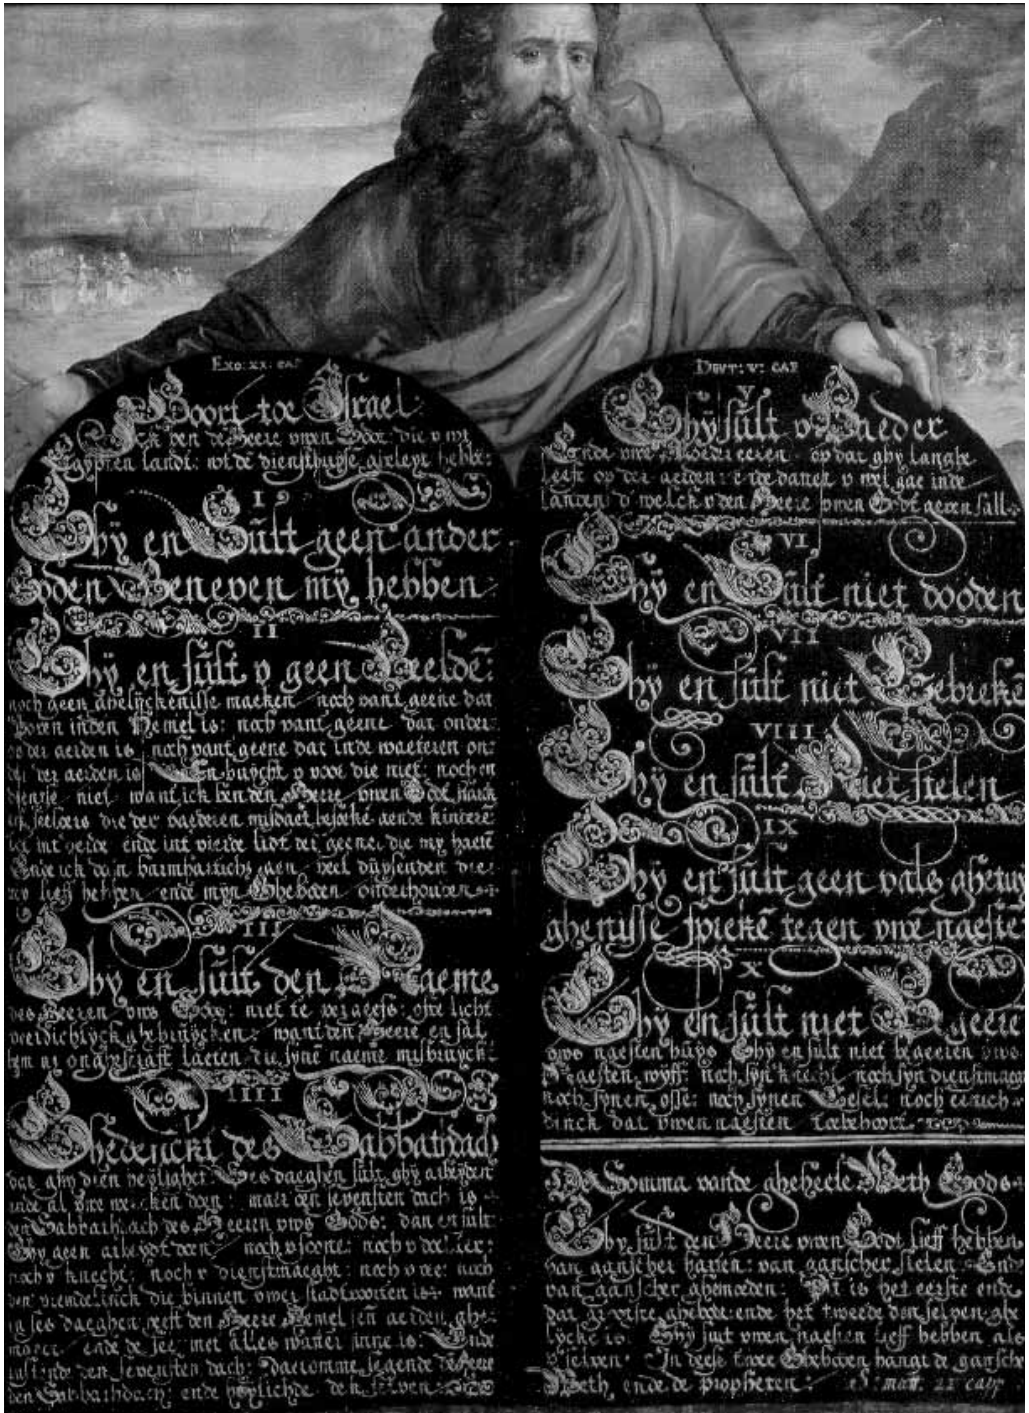 EXO: XX: CAP
Hoort toe Israel
Ick ben de Heere uwen Godt: die u uut
Egypten landt: uut de diensthuyse geleyt hebbe:
I
Ghÿ en Sult geen ander
Goden Beneven mÿ hebben
II
Ghÿ en sult v geen Beelde:
noch geen ghelyckenisse maeken noch vant geene dat
boven inden Hemel is: noch vant geene dat onder
op der aerden is noch vant geene dat inde waeteren on:
der der aerden is En buycht v voor die niet: noch en
dienste niet want ick ben den Heere uwen Godt
die der vaederen misdaet besoeke aende kindere
int derde ende int vierde lidt der geener die my haete
Ende ick doen barmharticheÿt aen veel duÿsenden die
my lieff hebben ende mÿn Gheboden onderhouden
III
Ghÿ en sult den Naeme
des Heeren uws Gods: niet te vergeefs: ofte licht
veerdichlÿck ghebruÿcken want den Heere en sal
hem niet ongestraft laeten die sÿne naeme misbruÿck:
IIII
Ghedenckt des Sabbathdach
dat ghÿ dien heÿlighet: Ses daeghen sult ghÿ arbeÿden
ende al uwe wercken doen: maer den sevensten dach is
den Sabbathdach des Heeren uws Gods: dan en sult
Ghÿ geen arbeÿdt doen noch v soone: noch v dochter:
noch v knecht: noch v dienstmaeght: noch v vee: noch
den vremdelinck die binnen uwer stadtpoorten is: want
in ses daeghen heeft den Heere Hemel en aerden ghe:
maect ende de see met alles watter inne is: Ende
ruste inde den sevensten dach: daeromme segende de Heere
den Sabbathdach: ende heÿlichde den selven
DEUT: V: CAP
V
Ghÿ sult v Vaeder
Ende uwe Moeder eeren op dat ghy langhe
leeft op der aerden: ende dattet v wel gae inde
landen d'welck v den Heere uwen Godt geven sall
VI
Ghÿ en Sult niet dooden
VII
Ghÿ en sult niet Eebreke
VIII
Ghÿ en sult Niet stelen
IX
Ghÿ en sult geen vals ghetuÿ
ghenisse spreke tegen uwe naeste
X
Ghÿ en sult niet Begeere
uws naesten huÿs Ghÿ en sult niet begeeren uws
Naesten wÿff: noch sÿn knecht noch sÿn dienstmaeght
noch sÿnen osse: noch sÿnen Eesel: noch eenich
dinck dat uwen naesten toebehoort
De Somma vande gheheele Weth Gods
Ghy sult den Heere uwen Godt lieff hebben
van ganscher harten: van ganscher sielen Ende
van ganscher ghemoeden: Dit is het eerste ende
dat grootste ghebodt: ende het tweede den selven ghe
lÿcke is: Ghÿ sult uwen naesten lieff hebben als
v selven: In deese twee Geboden hangt de gansche
Weth ende de propheten: S: matt: 22 capp